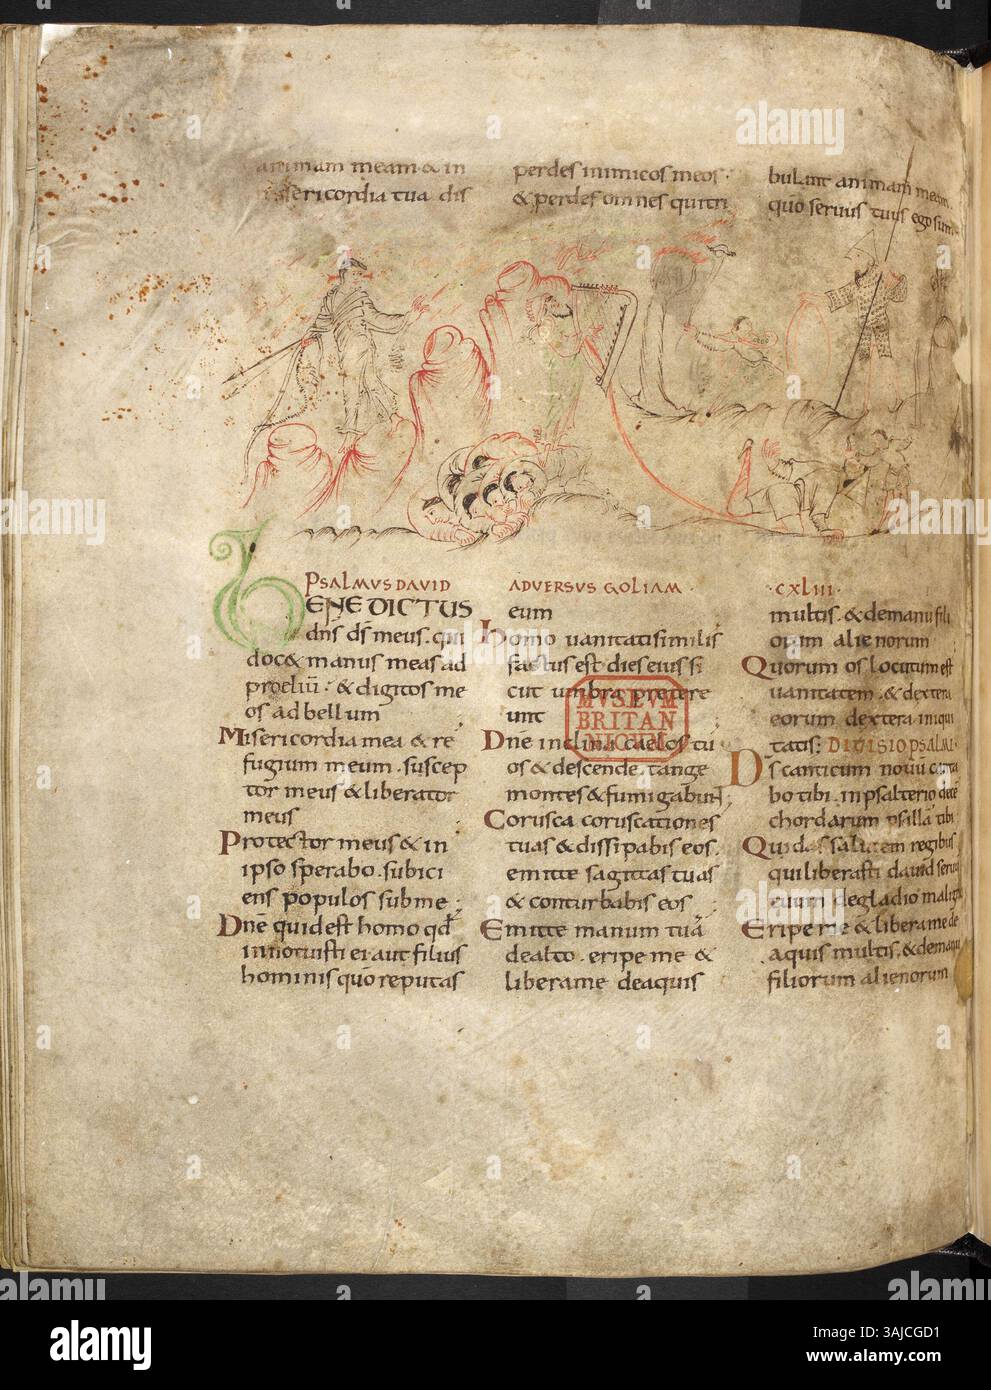 animam meam & in
misericordia tua dis
perdes inimicos meos·
& perdes omnes qui tri
bulant animam meam
quo servus tuus ego sum
PSALMUS DAVID
BENEDICTUS
dn̄s d̄s meus. qui
doc& manus meas ad
proeliū. & digitos me
os ad bellum
Misericordia mea & re
fugium meum. suscep
tor meus & liberator
meus
Protector meus & in
ipso sperabo. subici
ens populos sub me;
Dn̄e quid est homo qđ
innotuisti ei. aut filius
hominis quō reputas
ADVERSUS GOLIAM·
eum
homo vanitati similis
factus est dies eius s̄i
cut umbra pretere
unt
Dn̄e inclina caelos tu
os & descende. tange
montes & fumigabunt;
Corusca coruscationes
tuas & dissipabis eos.
emitte sagittas tuas
& conturbabis eos
Emitte manum tuā
de alto. eripe me &
libera me de aquis
·CXLIII·
multis. & de manu fili
orum alienorum
Quorum os locutum est
vanitatem. & dextera
eorum dextera iniqui
tatis; DIVISIO PSALMI·
Ds canticum novū canta
bo tibi. in psalterio decē
chordarum psallā tibi
Qui das salutem regibus
qui liberasti david servū
tuum de gladio maligno
Eripe me & libera me de
aquis multis. & de manu
filiorum alienorum
MVSEVM
BRITAN
NICVM
alamy
alamy
Image ID: 3AJCGD1
www.alamy.com